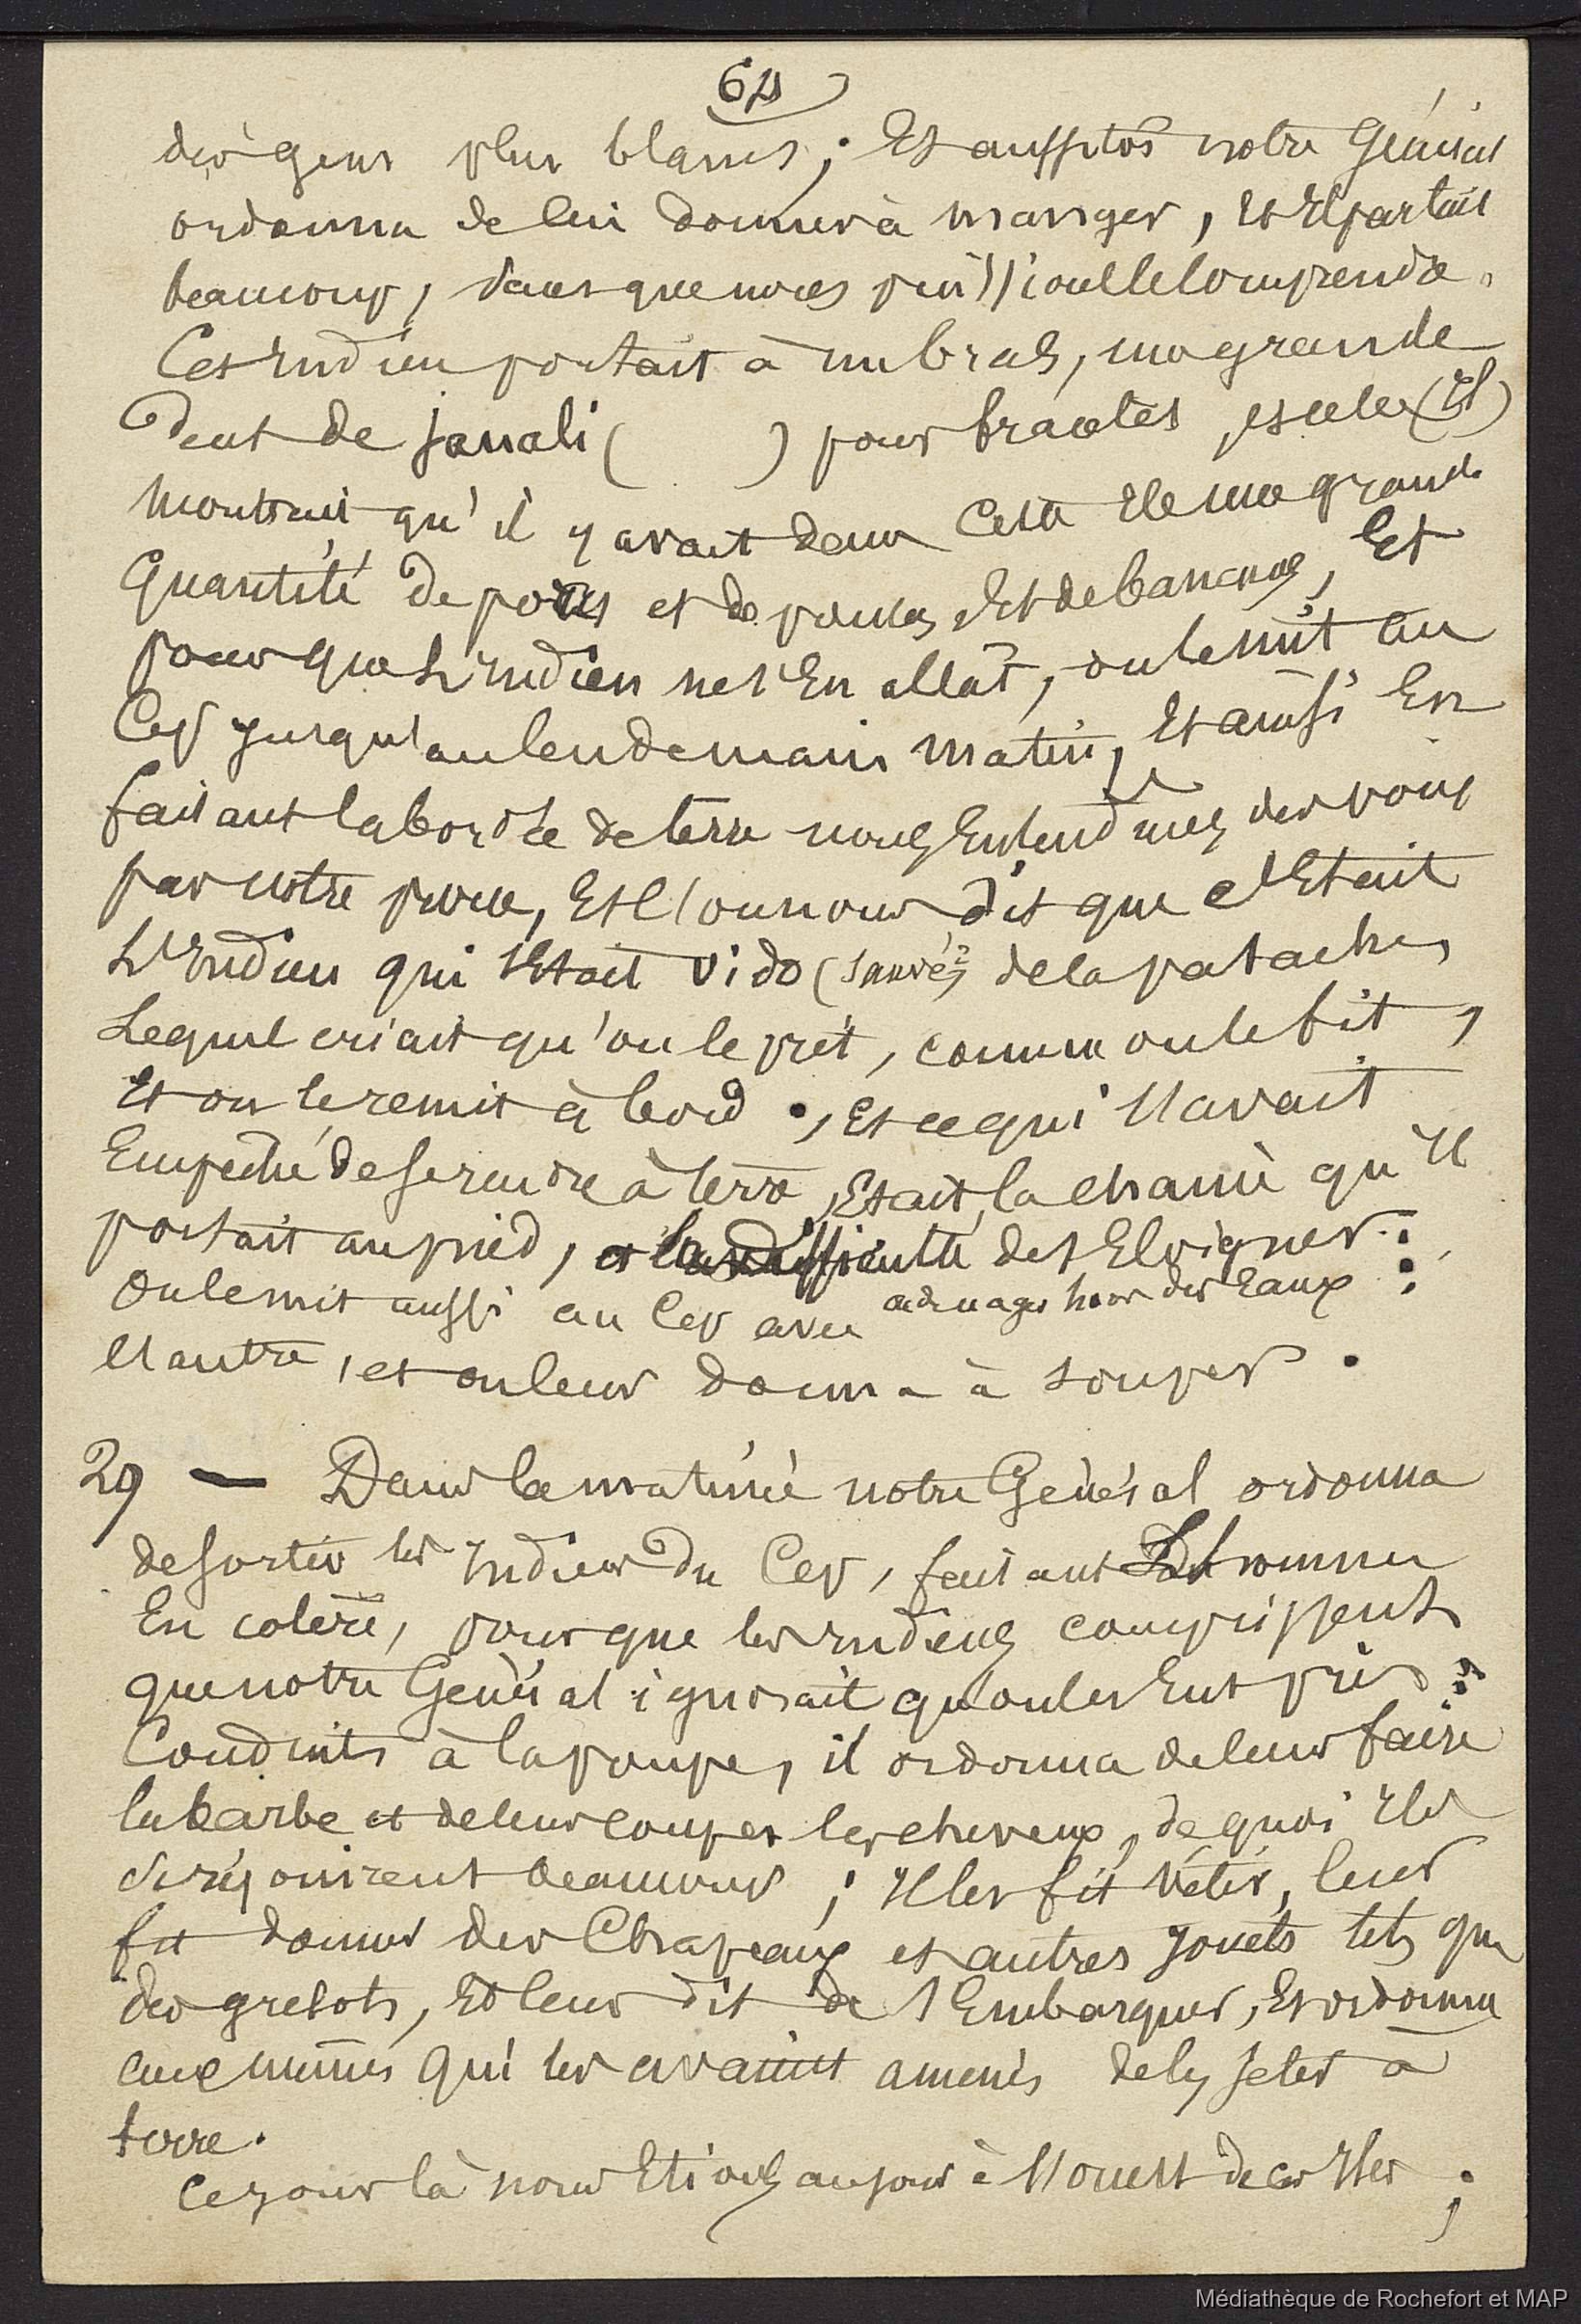 64
des gens plus blancs ; Et aussitôt notre Général
ordonna de lui donner à manger, et Il parlait
beaucoup, sans que nous puissions le comprendre.
Cet Indien portait à un bras, une grande
dent de Janali ( ) pour bracelet, (Il)
montrait qu'il y avait dans cette Ile une grande
Quantité de porcs et de poules Et de bananes, Et
pour que L'Indien ne s'En allât, on le mit au
Cep jusqu'au lendemain matin, Et ainsi En
faisant la bordée de terre nous Entendîmes des voix
par notre proue, Et l'on nous dit que c'Etait
L'Indien qui s'Etait vido (sauvé ?) de la patache,
Lequel criait qu'on le prît, comme on le fit,
Et on le remit à bord ., Et ce qui l'avait
Empêché de se rendre à terre, Etait la chaîne qu'Il
portait au pied, et la difficulté de s'Eloigner :
à la nage hors des Eaux :
On le mit aussi au Cep avec
l'autre, et on leur donna à souper .
29 — Dans la matinée notre Général ordonna
de sortir les Indiens du Cep, faisant L'homme
En colère, pour que les Indiens comprissent
que notre Général ignorait qu'on les Eut pris :
Conduits à la poupe, il ordonna de leur faire
la barbe et de leur couper les cheveux, de quoi Ils
se réjouirent beaucoup ; Il les fit vêtir, leur
fit donner des Chapeaux et autres jouets tels que
des grelots, Et leur dit de s'Embarquer, Et ordonna
eux mêmes qui les avaient amenés de les jeter à
terre.
Ce jour là nous Etions au jour à l'ouest de ces Iles ;
Médiathèque de Rochefort et MAP